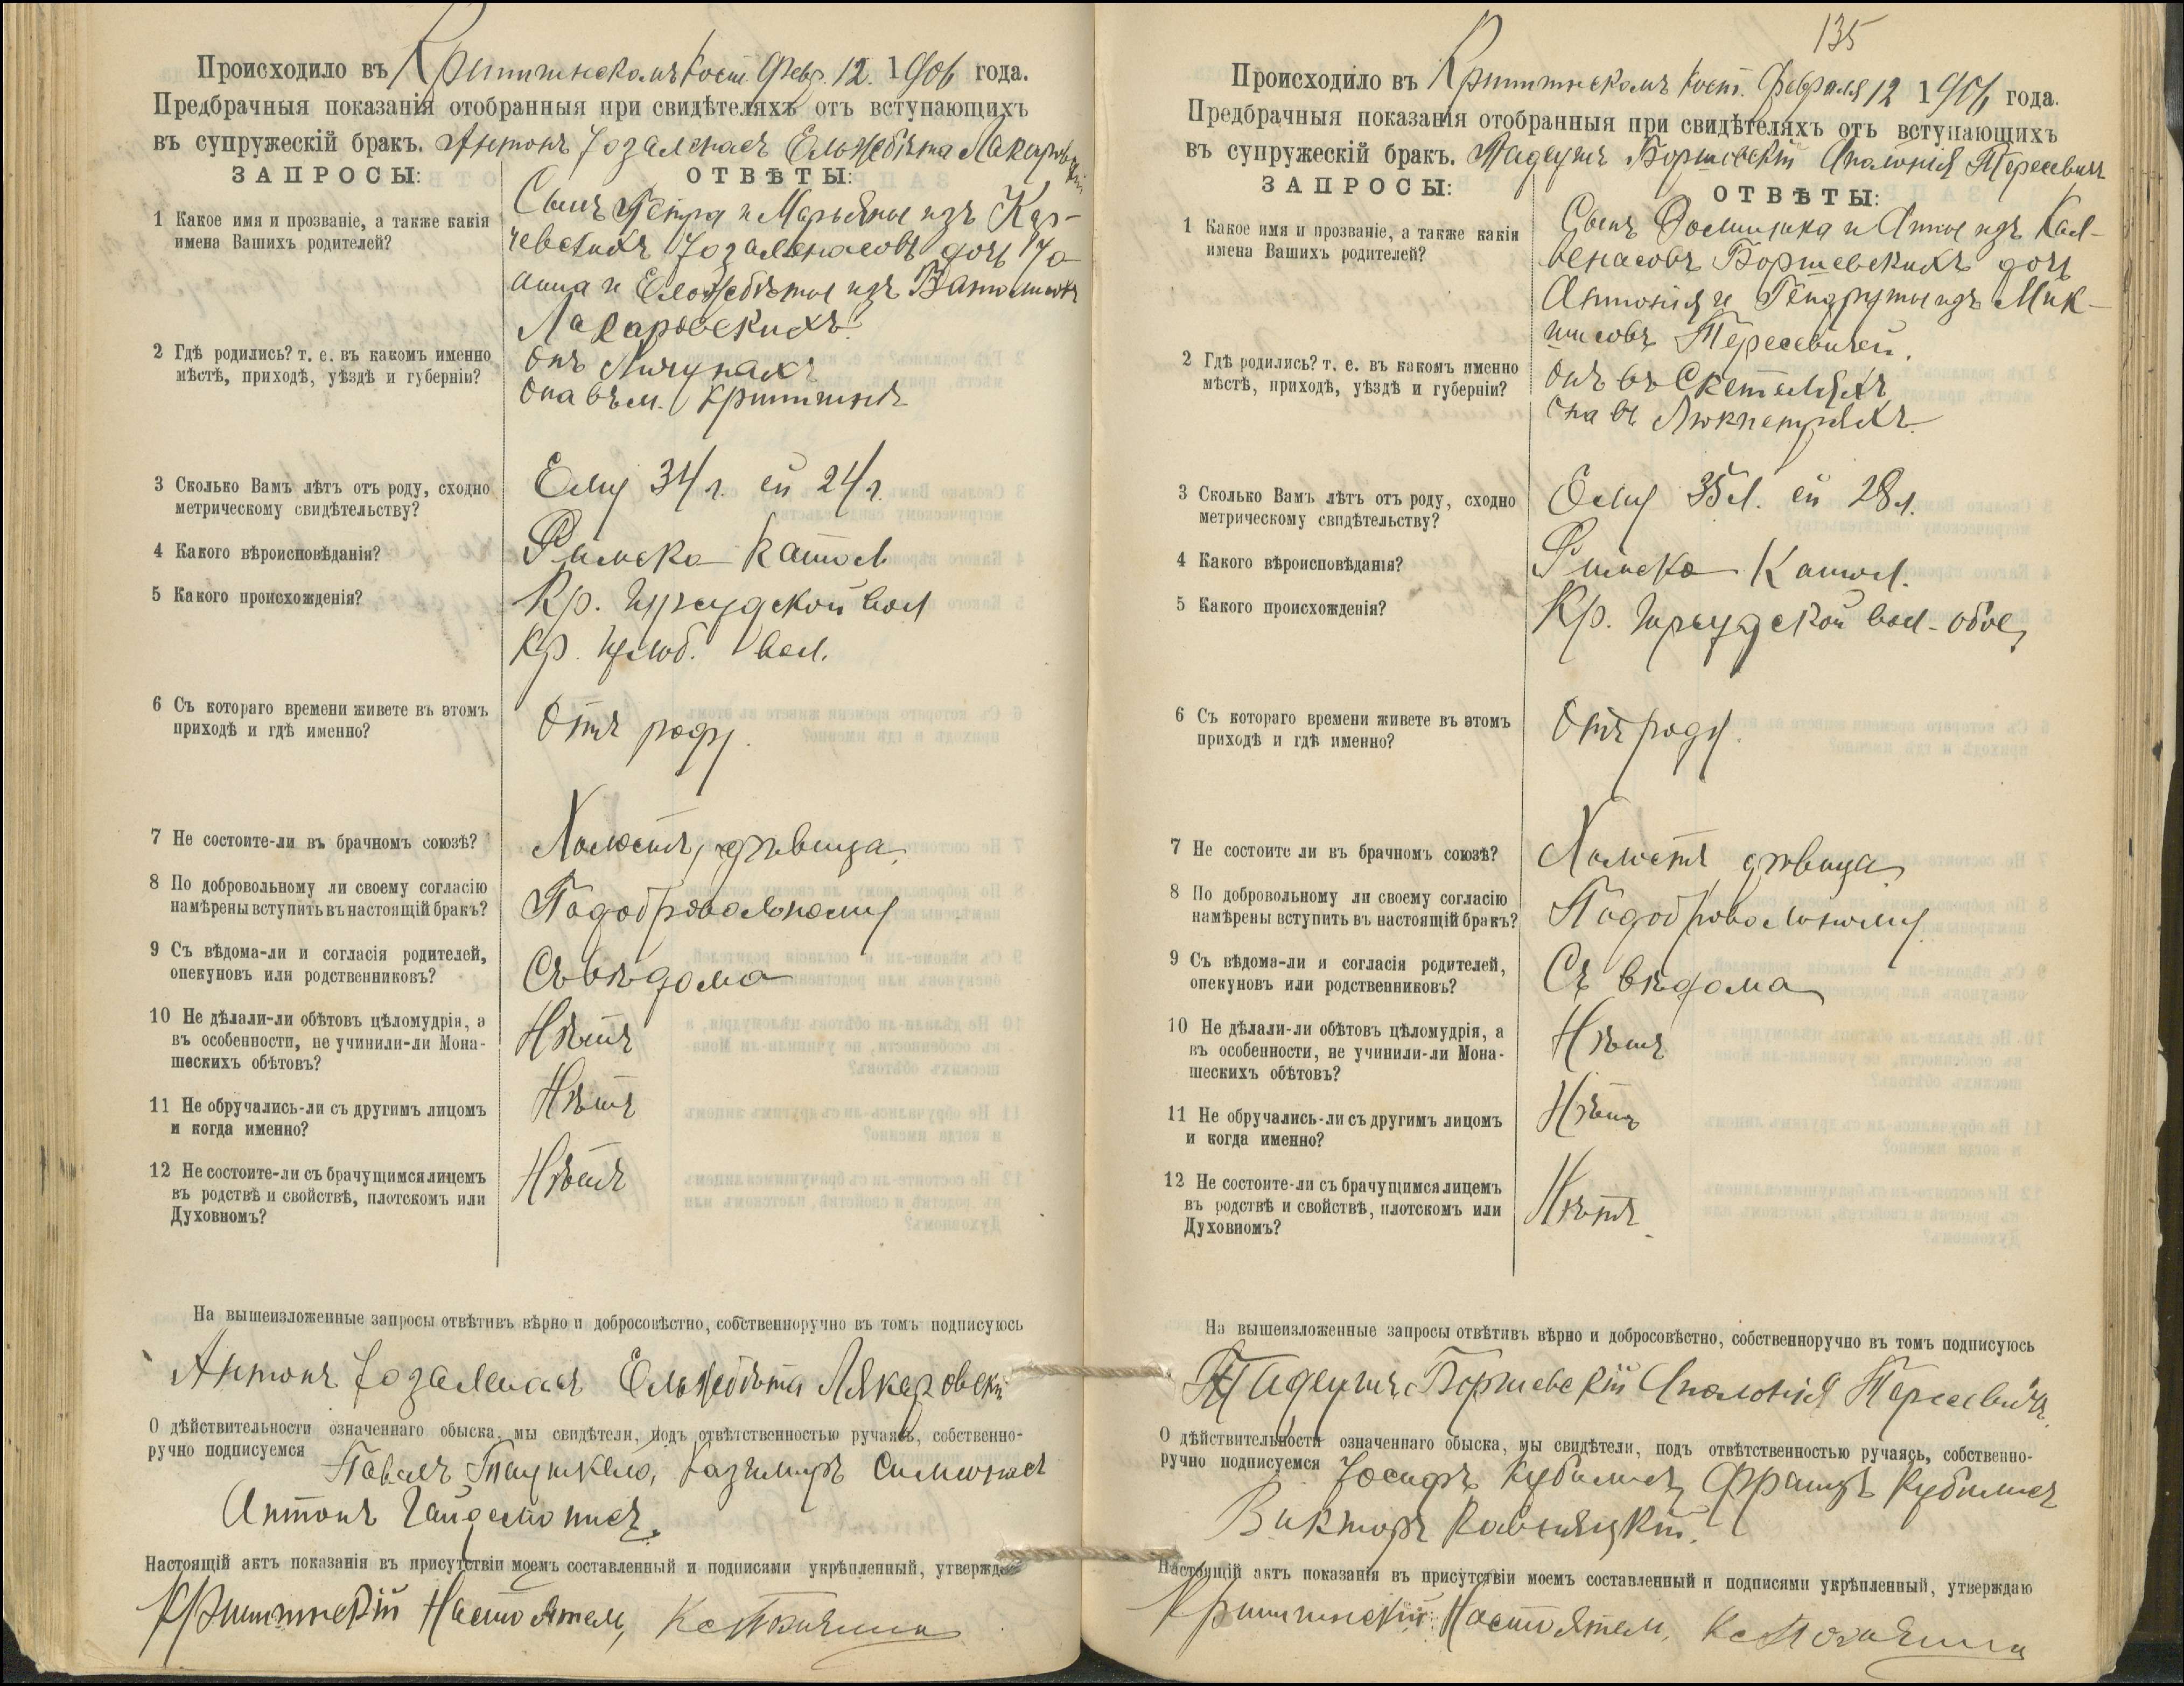 Происходило въ Криштинскомъ Кост. Февр. 12. 1906 года.
Предбрачныя показанія отобранныя при свидѣтеляхъ отъ вступающихъ
въ супружескій бракъ. Антонъ Ельжбѣта
ЗАПРОСЫ:
ОТВѢТЫ:
1 Какое имя и прозваніе, а также какія
имена Вашихъ родителей?
Сынъ Петра и Марьяны изъ
дочь
и Ельжбѣты изъ
2 Гдѣ родились? т. е. въ какомъ именно
мѣстѣ, приходѣ, уѣздѣ и губерніи?
Онъ
Она въ м.
3 Сколько Вамъ лѣтъ отъ роду, сходно
метрическому свидѣтельству?
Ему 34 г. ей 24 г.
4 Какого вѣроисповѣданія?
Римско Катол
5 Какого происхожденія?
Кр. вол
Кр. вол.
6 Съ котораго времени живете въ этомъ
приходѣ и гдѣ именно?
Отъ роду.
7 Не состоите-ли въ брачномъ союзѣ?
Холостъ, дѣвица.
8 По добровольному ли своему согласію
намѣрены вступить въ настоящій бракъ?
Подобровольному
9 Съ вѣдома-ли и согласія родителей,
опекуновъ или родственниковъ?
Съ вѣдома
10 Не дѣлали-ли обѣтовъ цѣломудрія, а
въ особенности, не учинили-ли Мона-
шескихъ обѣтовъ?
Нѣтъ
11 Не обручались-ли съ другимъ лицомъ
и когда именно?
Нѣтъ
12 Не состоите-ли съ брачущимся лицемъ
въ родствѣ и свойствѣ, плотскомъ или
Духовномъ?
Нѣтъ
На вышеизложенные запросы отвѣтивъ вѣрно и добросовѣстно, собственноручно въ томъ подписуюсь
Антонъ Ельжбѣта
О дѣйствительности означеннаго обыска, мы свидѣтели, подъ отвѣтственностью ручаясь, собственно-
ручно подписуемся Казимиръ
Антонъ
Настоящій актъ показанія въ присутствіи моемъ составленный и подписями укрѣпленный, утвержд
Настоятель,
135
Происходило въ Криштинскомъ Кост. Февраля 12 1906 года.
Предбрачныя показанія отобранныя при свидѣтеляхъ отъ вступающихъ
въ супружескій бракъ. Тадеушъ Боршевскій Аполонія
ЗАПРОСЫ:
ОТВѢТЫ:
1 Какое имя и прозваніе, а также какія
имена Вашихъ родителей?
Сынъ Доминика и Анны изъ
Боршевскихъ дочь
Антонія и изъ
2 Гдѣ родились? т. е. въ какомъ именно
мѣстѣ, приходѣ, уѣздѣ и губерніи?
Онъ въ
Она въ
3 Сколько Вамъ лѣтъ отъ роду, сходно
метрическому свидѣтельству?
Ему 35 л. ей 28 л.
4 Какого вѣроисповѣданія?
Римско Катол.
5 Какого происхожденія?
Кр. вол. обое
6 Съ котораго времени живете въ этомъ
приходѣ и гдѣ именно?
Отъ роду.
7 Не состоите ли въ брачномъ союзѣ?
Холостъ дѣвица
8 По добровольному ли своему согласію
намѣрены вступить въ настоящій бракъ?
Подобровольному
9 Съ вѣдома-ли и согласія родителей,
опекуновъ или родственниковъ?
Съ вѣдома
10 Не дѣлали-ли обѣтовъ цѣломудрія, а
въ особенности, не учинили-ли Мона-
шескихъ обѣтовъ?
Нѣтъ
11 Не обручались-ли съ другимъ лицомъ
и когда именно?
Нѣтъ
12 Не состоите-ли съ брачущимся лицемъ
въ родствѣ и свойствѣ, плотскомъ или
Духовномъ?
Нѣтъ.
На вышеизложенные запросы отвѣтивъ вѣрно и добросовѣстно, собственноручно въ томъ подписуюсь
Тадеушъ Боршевскій Аполонія
О дѣйствительности означеннаго обыска, мы свидѣтели, подъ отвѣтственностью ручаясь, собственно-
ручно подписуемся Іосифъ Францъ
Викторъ
Настоящій актъ показанія въ присутствіи моемъ составленный и подписями укрѣпленный, утверждаю
Настоятель,